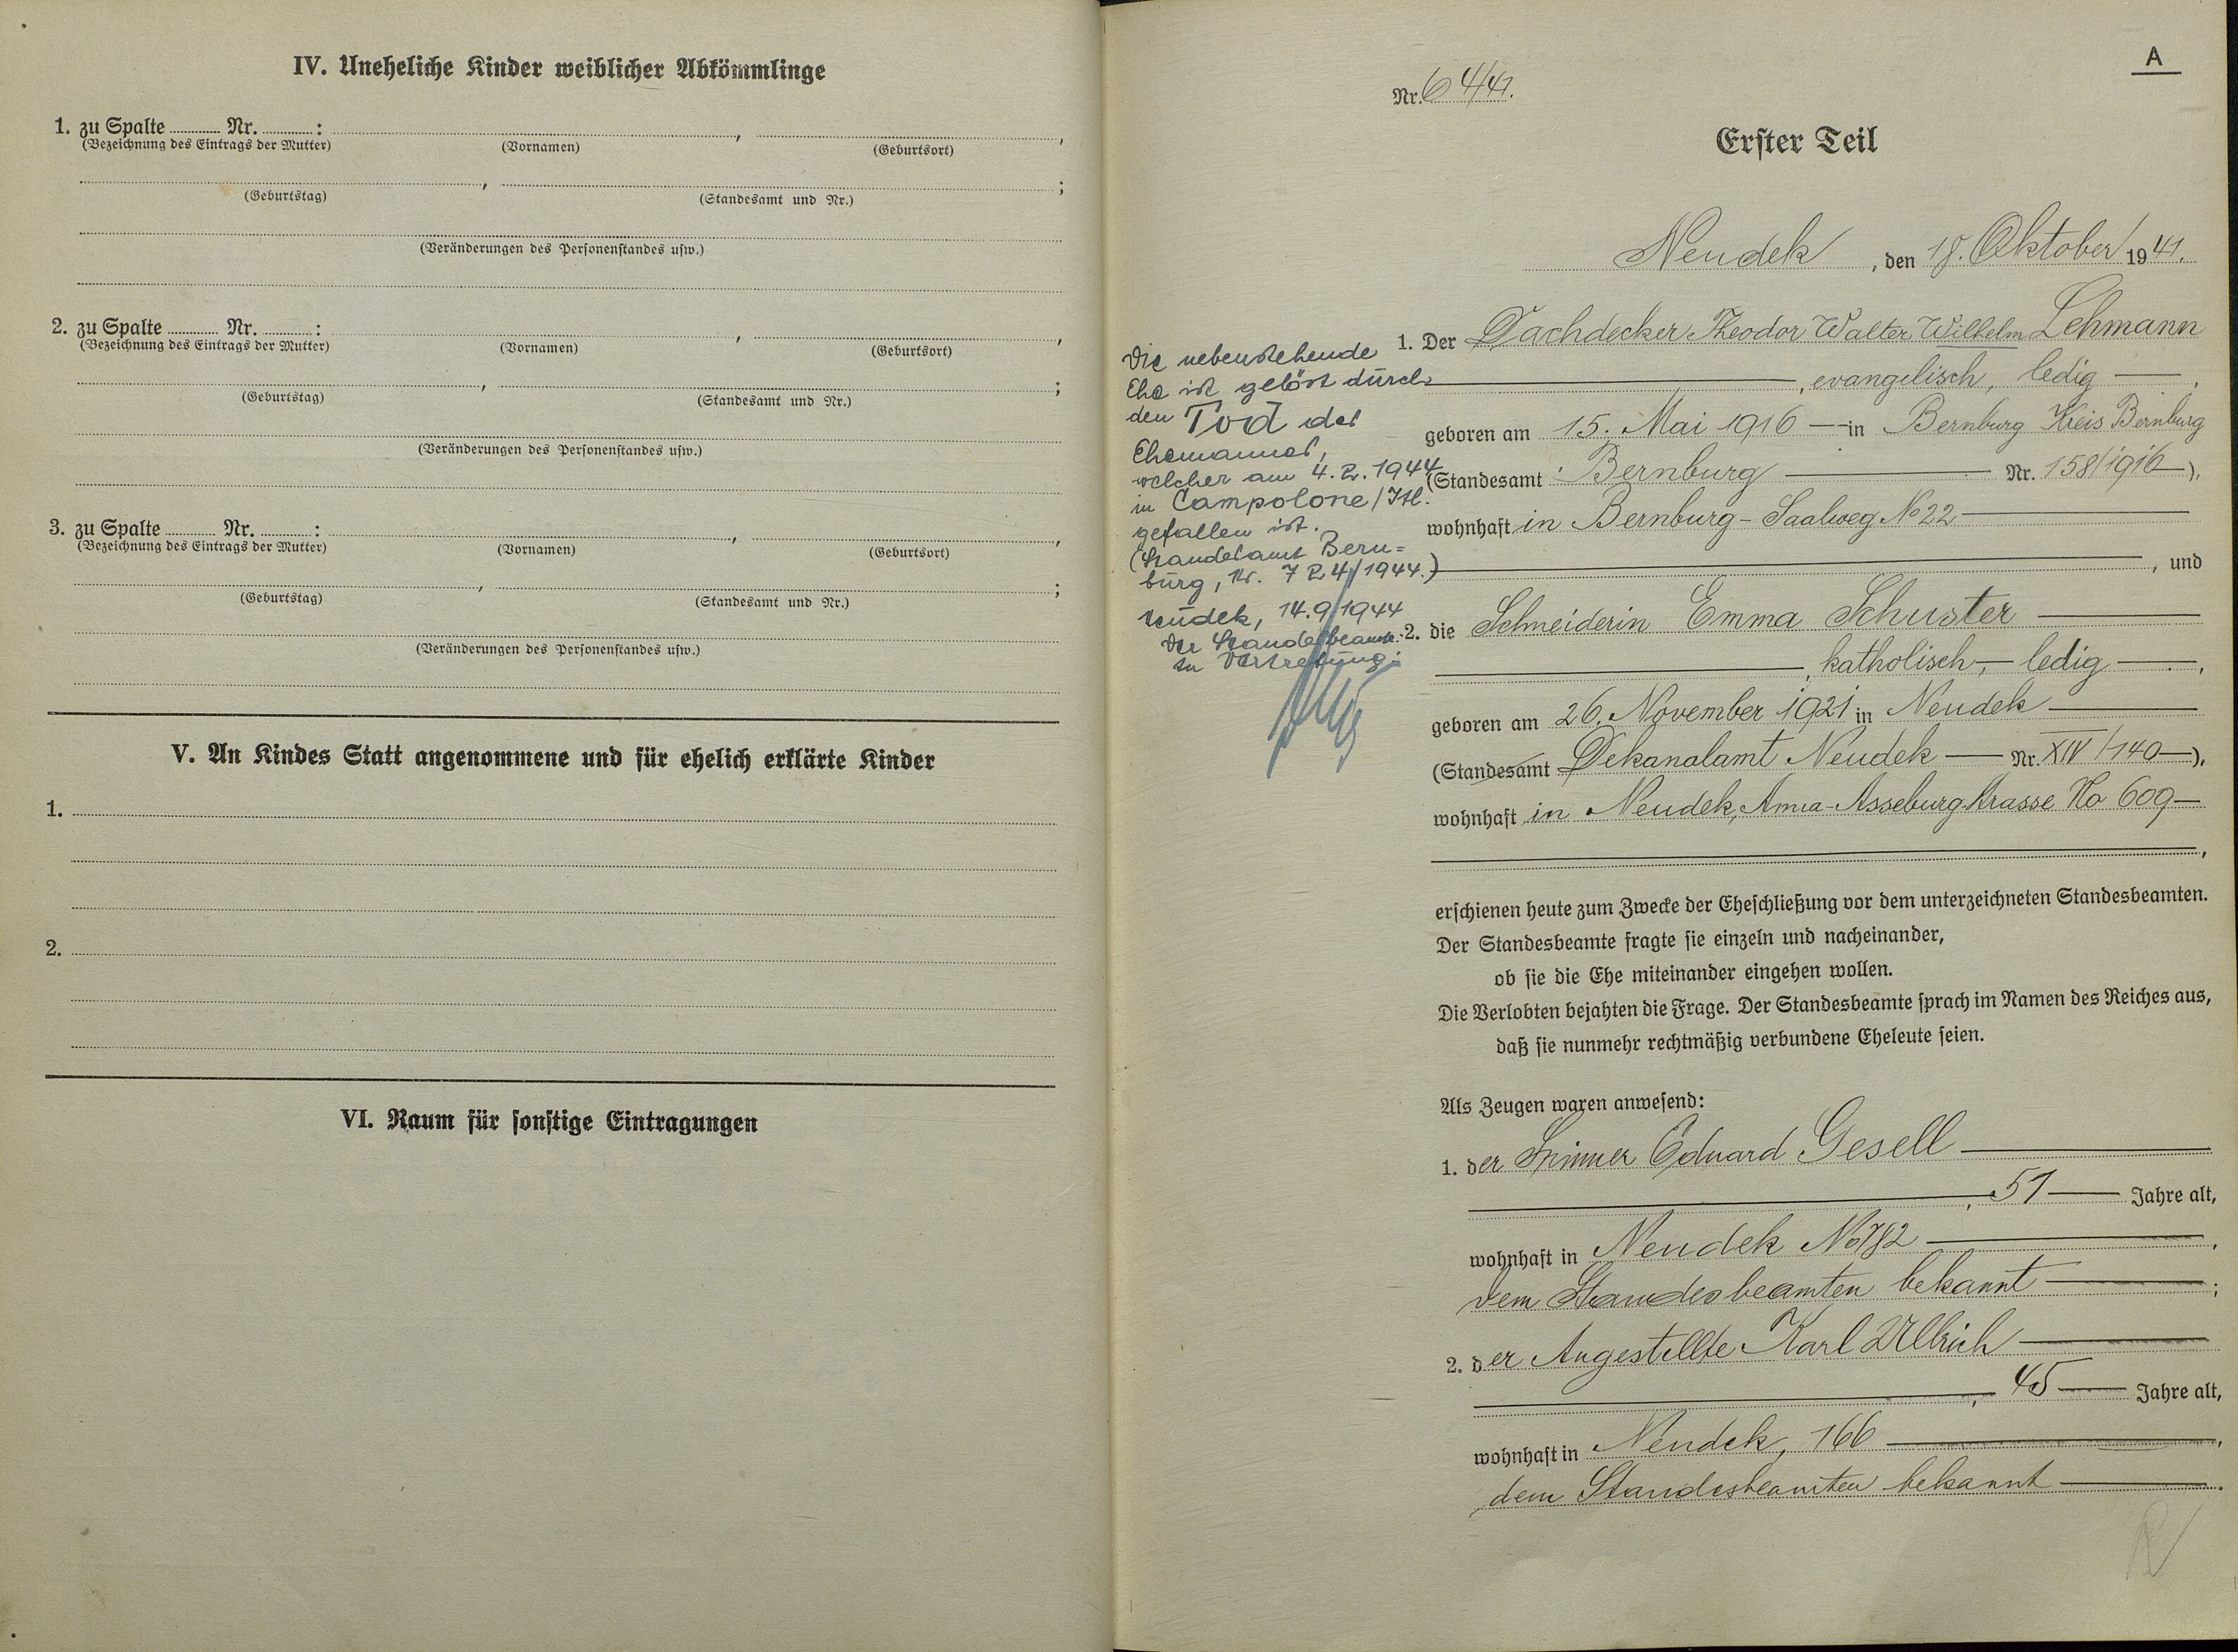 IV. Uneheliche Kinder weiblicher Abkömmlinge
1. zu Spalte ........ Nr. ........ : , ,
(Bezeichnung des Eintrags der Mutter) (Vornamen) (Geburtsort)
, ;
(Geburtstag) (Standesamt und Nr.)
(Veränderungen des Personenstandes usw.)
2. zu Spalte ........ Nr. ........ : , ,
(Bezeichnung des Eintrags der Mutter) (Vornamen) (Geburtsort)
, ;
(Geburtstag) (Standesamt und Nr.)
(Veränderungen des Personenstandes usw.)
3. zu Spalte ........ Nr. ........ : , ,
(Bezeichnung des Eintrags der Mutter) (Vornamen) (Geburtsort)
, ;
(Geburtstag) (Standesamt und Nr.)
(Veränderungen des Personenstandes usw.)
V. An Kindes Statt angenommene und für ehelich erklärte Kinder
1.
2.
VI. Raum für sonstige Eintragungen
A
Nr. 64/41.
Erster Teil
Neudek, den 18. Oktober 1941.
1. Der Dachdecker Theodor Walter Wilhelm Lehmann
, evangelisch, ledig — ,
geboren am 15. Mai 1916 — in Bernburg Kreis Bernburg
(Standesamt Bernburg — Nr. 158/1916 —),
wohnhaft in Bernburg - Saalweg No 22 —
, und
2. die Schneiderin Emma Schuster —
, katholisch, — ledig — ,
geboren am 26. November 1921 in Neudek —
(Standesamt Dekanalamt Neudek — Nr. XIV/140 —),
wohnhaft in Neudek, Anna-Asseburgstrasse No 609 —
,
Die nebenstehende
Ehe ist gelöst durch
den Tod des
Ehemannes,
welcher am 4.2.1944
in Campolone/Itl.
gefallen ist.
(Standesamt Bern=
burg, Nr. 724/1944.)
Neudek, 14.9.1944
Der Standesbeamte:
In Vertretung:
erschienen heute zum Zwecke der Eheschließung vor dem unterzeichneten Standesbeamten.
Der Standesbeamte fragte sie einzeln und nacheinander,
ob sie die Ehe miteinander eingehen wollen.
Die Verlobten bejahten die Frage. Der Standesbeamte sprach im Namen des Reiches aus,
daß sie nunmehr rechtmäßig verbundene Eheleute seien.
Als Zeugen waren anwesend:
1. der Spinner Eduard Gesell —
, 51 — Jahre alt,
wohnhaft in Neudek No 782 — ,
dem Standesbeamten bekannt — ;
2. der Angestellte Karl Ullrich —
, 45 — Jahre alt,
wohnhaft in Neudek, 166 — ,
dem Standesbeamten bekannt — .